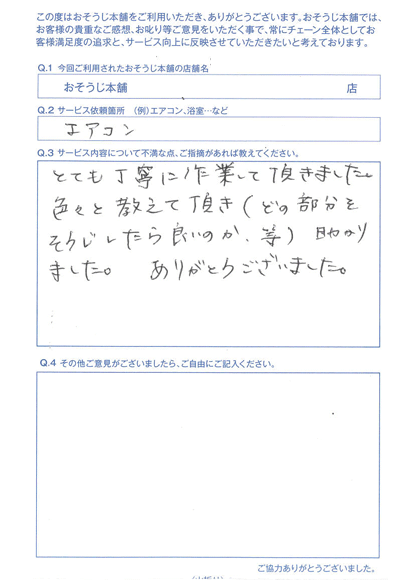 この度はおそうじ本舗をご利用いただき、ありがとうございます。おそうじ本舗では、
お客様の貴重なご感想、お叱り等ご意見をいただく事で、常にチェーン全体としてお
客様満足度の追求と、サービス向上に反映させていただきたいと考えております。
Q.1 今回ご利用されたおそうじ本舗の店舗名
おそうじ本舗 店
Q.2 サービス依頼箇所 （例）エアコン、浴室…など
エアコン
Q.3 サービス内容について不満な点、ご指摘があれば教えてください。
とても丁寧に作業して頂きました。
色々と教えて頂き（どの部分を
そうじしたら良いのか、等）助かり
ました。 ありがとうございました。
Q.4 その他ご意見がございましたら、ご自由にご記入ください。
ご協力ありがとうございました。